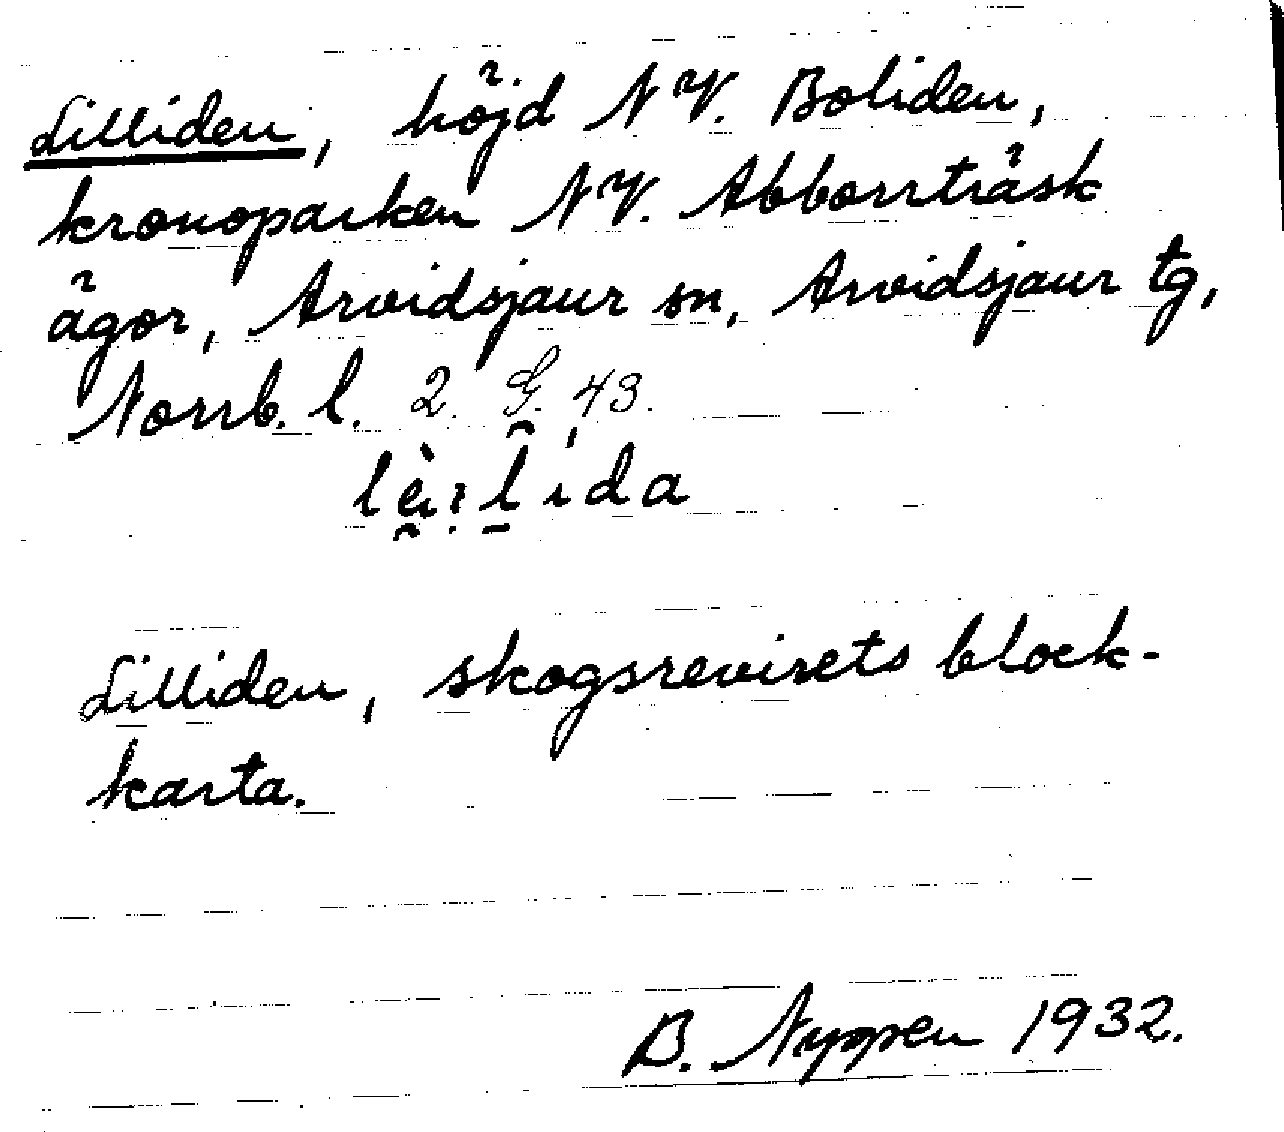 Lilliden, höjd NV. Boliden,
kronoparken NV. Abborrträsk
ägor, Arvidsjaur sn, Arvidsjaur tg,
Norrb. l. 2. G. 43.
Lilliden, skogsrevirets block-
karta.
B. Nyppen 1932.